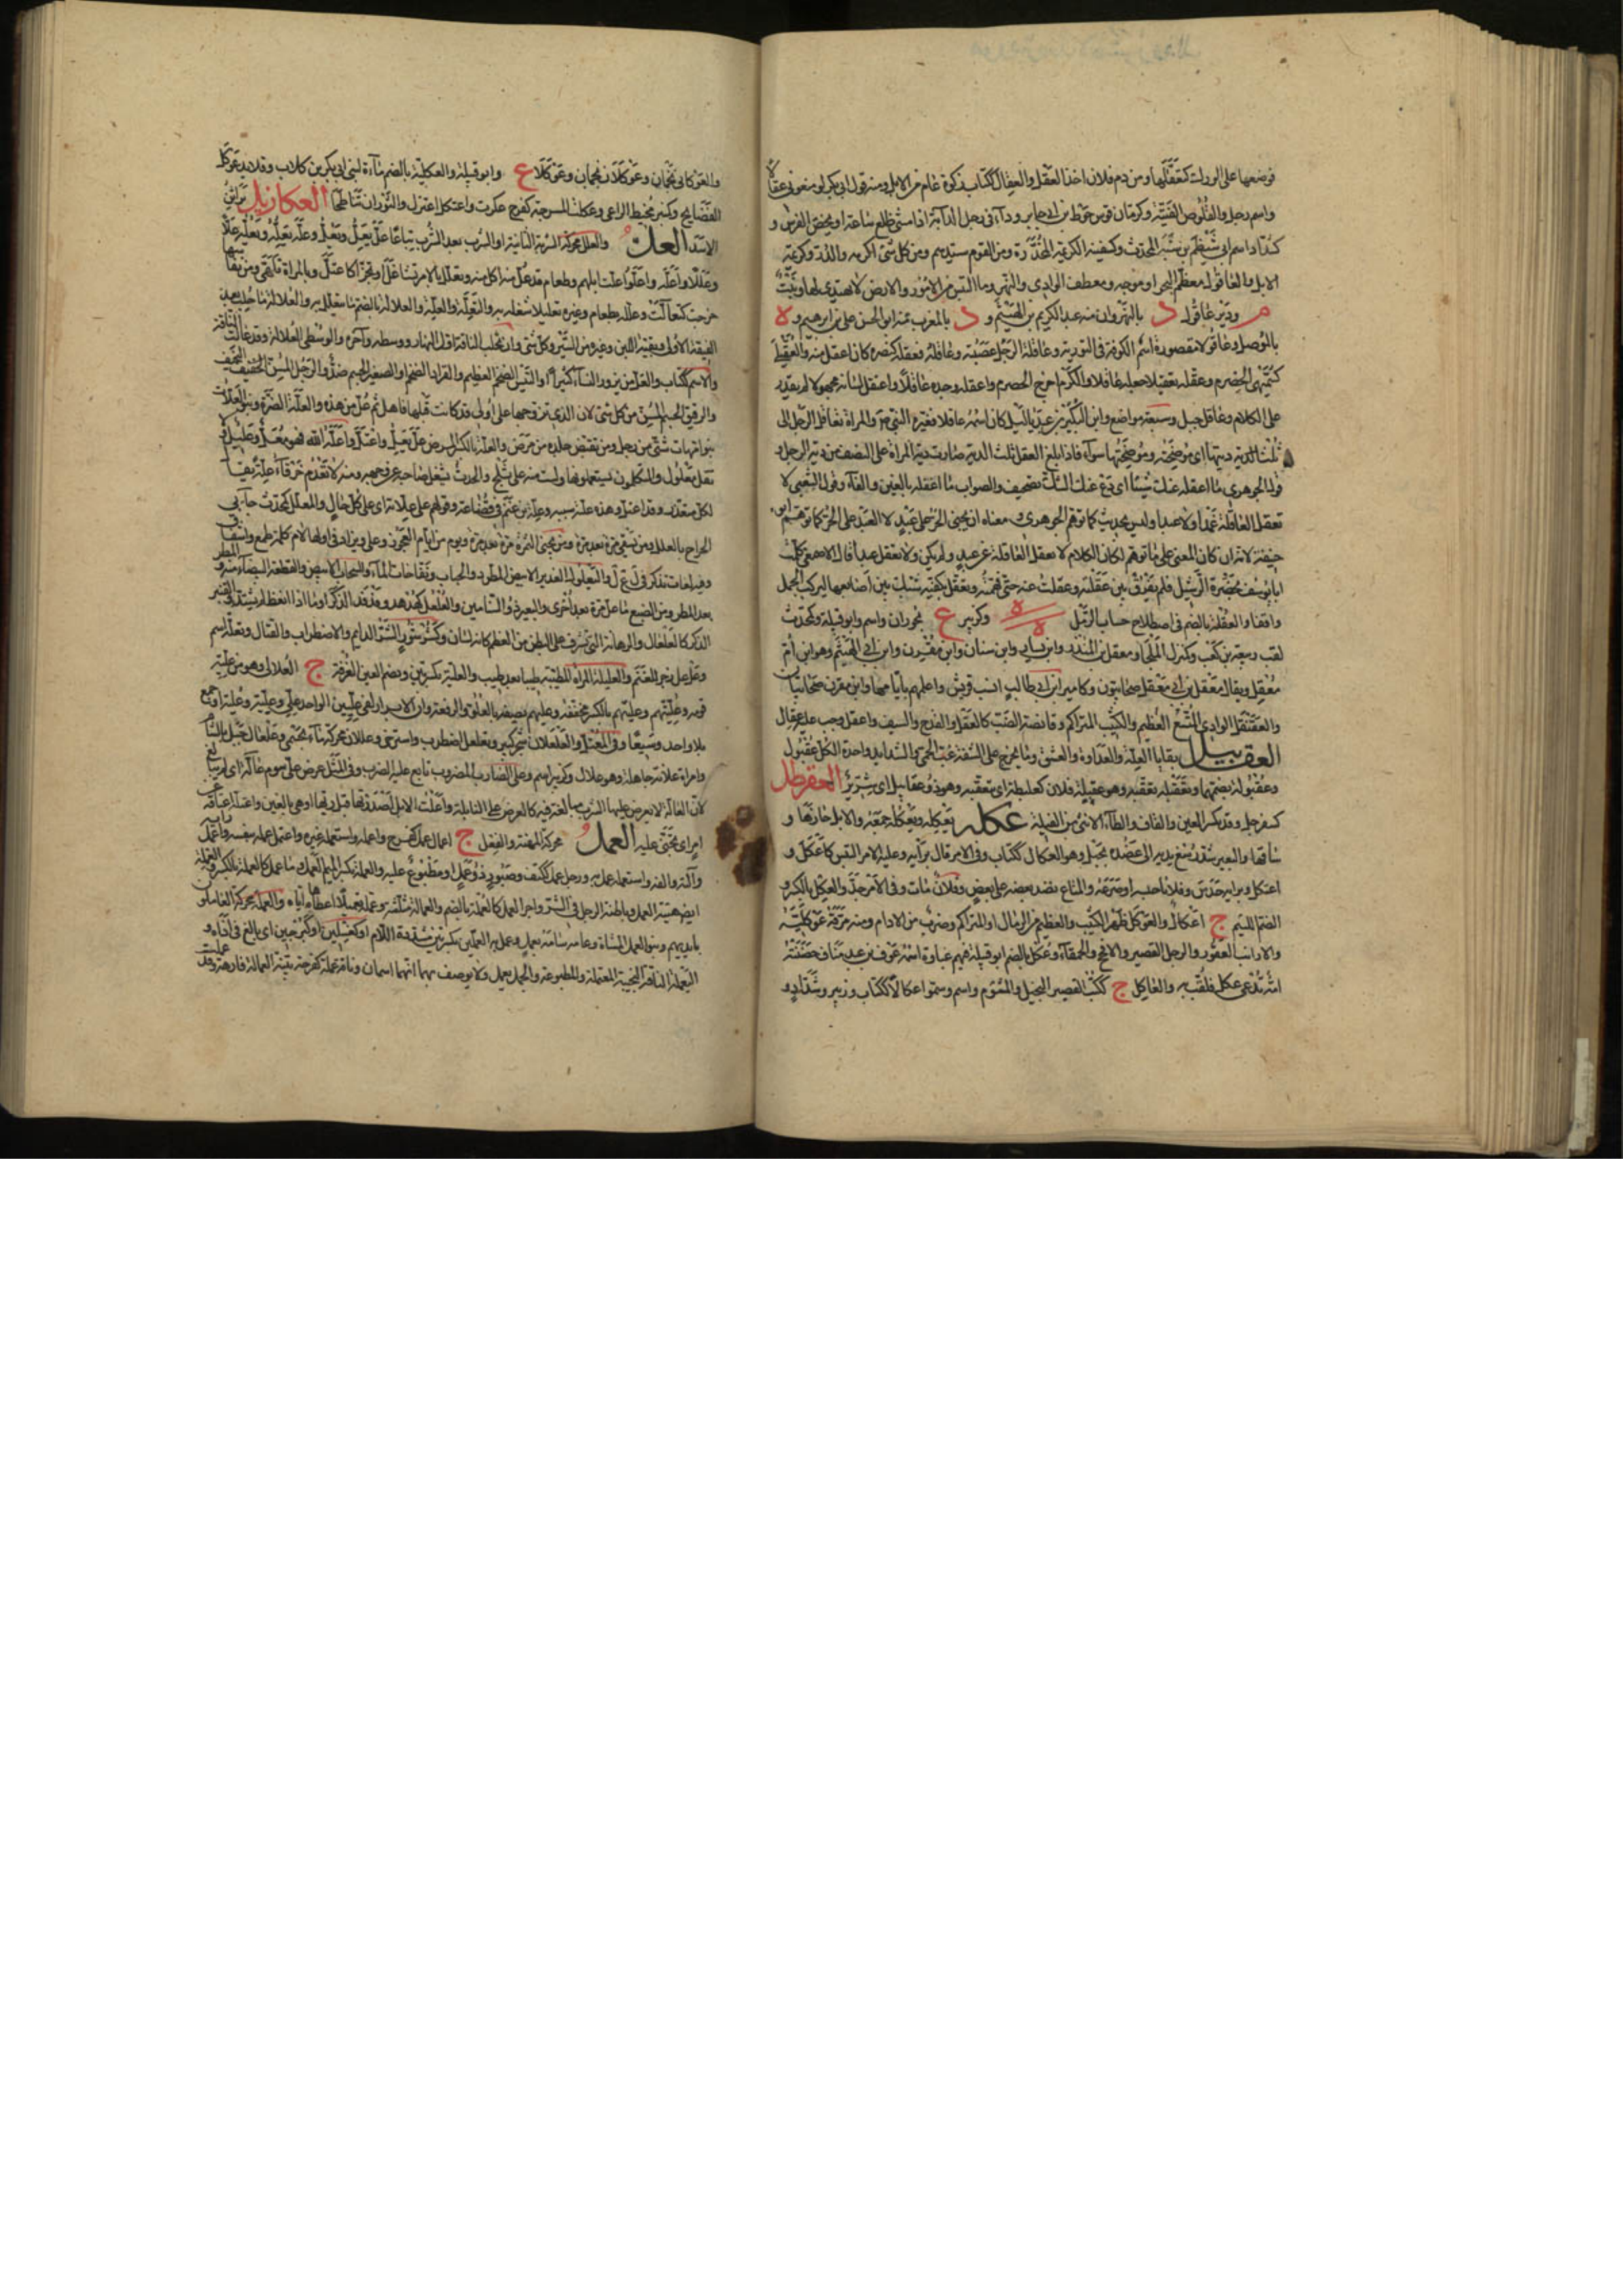 فوضعها على الورك كتعقلها ومن دم فلان اخذ العقل والعقال ككتاب زكوة عام من الابل ومنه قول ابى بكر لو منعونى عقالا
واسم رجل والقلوص الفتية وكرمان فرس حوط بن ابى جابر وداء فى رجل الدابة اذا مشى ظلع ساعة او يخص الفرس و
كشداد اسم ابى شيظم بن شبة المحدث وكسفينة الكريمة المخدرة ومن القوم سيدهم ومن كل شئ اكرمه والدر وكريمة
الابل والعاقول معظم البحر او موجه ومعطف الوادى والنهر وما التبس من الامور والارض لا يهتدى لها ونبت
م ودير عاقول د بالنهروان منه عبد الكريم بن الهيثم و د بالمغرب منه ابو الحسن على بن ابرهيم و ة
بالموصل وعاقولا مقصورة اسم الكوفة فى التورية وعاقلة الرجل عصبته وعاقله فعقله كنصره كان اعقل منه والعقيلى
كسميهى الحصرم وعقله تعقيلا جعله عاقلا والكرم اخرج الحصرم واعقله وجده عاقلا واعتقل لسانه مجهولا لم يقدر
على الكلام وعاقل جبل وسبعة مواضع وابن البكير بن عبد ياليل كان اسمه غافلا فغيره النبى صم والمراة تعاقل الرجل الى
ثلث الدية ديتها اى موضحته وموضحتها سواء فاذا بلغ العقل ثلث الدية صارت دية المراة على النصف من دية الرجل و
قول الجوهرى ما اعقله عنك شيئا اى دع عنك الشك تصحيف والصواب ما اغفله بالغين والفاء وقول الشعبى لا
تعقل العاقلة عمدا ولا عبدا وليس بحديث كما توهم الجوهرى ومعناه ان يجنى الحر على عبد لا العبد على الحر كما توهم ابو
حنيفة لانه لو كان المعنى على ما توهم لكان الكلام لا تعقل العاقلة عن عبد ولم يكن ولا تعقل عبدا قال الاصمعى كلمت
ابا يوسف بحضرة الرشيد فلم يفرق بين عقلته وعقلت عنه حتى فهمته وتعقل بكفيه شبك بين اصابعهما ليركب الجمل
واقفا والعقلة بالضم فى اصطلاح حساب الرمل وكزبير ع بحوران واسم وابو قبيلة وكمحدث
لقب ربيعة بن كعب وكمنزل الملجأ ومعقل بن المنذر وابن يسار وابن سنان وابن مقرن وابن ابى الهيثم وهو ابن ام
معقل ويقال معقل بن ابى معقل صحابيون وكامير ابن ابى طالب انسب قريش واعلمهم بايامها وابن مقرن صحابيان
والعقنقل الوادى المتسع العظيم والكثيب المتراكم وقانصة الضب كالعقل والقدح والسيف واعقل وجب عليه عقال
العقبيل بقايا العلة والعداوة والعشق وما يخرج على الشفة غب الحمى والشدايد واحدة الكل عقبول
وعقبولة بضمهما وتعقبله تعقبه وهو عقيلة فلان كعلبطة اى يتعقبه وهو ذو عقابيل اى شرير العقرطل
كسفرجل وقد يكسر العين والقاف والطاء الانثى من الفيلة عكله يعكله ويعكله جمعه والابل حازها و
ساقها والبعير شد رسغ يديه الى عضده بحبل وهو العكال ككتاب وفى الامر قال برايه وعليه الامر التبس كاعكل و
اعتكل وبرايه حدس وفلانا حبسه او صرعه والمتاع نضد بعضه على بعض وفلان مات وفى الامر جد والعكل بالكسر و
الضم اللئيم ج اعكال والعوكل ظهر الكثيب والعظيم من الرمال او المتراكم وضرب من الادام ومنه مرقة عوكلية
والارنب العقور والرجل القصير والافحج والحمقاء وعكل بالضم ابو قبيلة فيهم غباوة اسمه عوف بن عبد مناف حضنته
امة تدعى عكل فلقب به والعاكل ج ككتب القصير البخيل والمشوم واسم وسموا عكالا ككتاب وزبير وشداد و
والعوكلان بنجمان وعوكلان بنجمان وعوكلاع وابو قبيلة والعكلية بالضم ماءة لبنى ابى بكر بن كلاب وقلايد عوكل
الفضايح وكمنبر مخيط الراعى وعكلت المسرجة كفرح عكرت واعتكل اعتزل والثوران تناطحا العكازيل براثن
الاسد العل والعلل محركة الشربة الثانية او الشرب بعد الشرب تباعا عل يعل ويعل وعله يعله ويعله علا
وعللا واعله واعلوا علت ابلهم وطعام قد عل منه اكل منه وتعلل بالامر تشاغل او تجزأ كاعتل وبالمراة تلهى ومن نفاسها
خرجت كتعالت وعلله بطعام وغيره تعليلا شغله به والتعلة والعلة والعلالة بالضم ما يتعلل به والعلالة ما حلب بعد
الفيقة الاولى وبقية اللبن وغيره ومن السير وكل شئ وان تحلب الناقة اول النهار ووسطه وآخره والوسطى العلالة وقد عالت الناقة
والاسم ككتاب والعل من يزور النساء كثيرا والتيس الضخم العظيم والقراد الضخم او الصغير الجسم ضد والرجل المسن النحيف
والرقيق الجسم المسن من كل شئ لان الذى تزوجها على اولى قد كانت قبلها ناهل ثم عل من هذه والعلة الضرة وبنو العلات
بنو امهات شتى من رجل ومن تقبض جلده من مرض والعلة بالكسر المرض عل يعل واعتل واعله الله فهو معل وعليل ولا
تقل معلول والمتكلمون يستعملونها ولست منه على ثلج والحدث يشغل صاحبه عن وجهه ومنه لا تعدم خرقاء علة يقال
لكل متعذر وقد اعتل وهذه علته سببه وعلة بن غنم فى قضاعة وقولهم على علاته اى على كل حال والمعلل كمحدث جابى
الخراج بالعلل ومن يسقى مرة بعد مرة ومن يجنى الثمرة مرة بعد مرة ويوم من ايام العجوز وعل ويزاد فى اولها لام كلمة طمع واشفاق
وفيه لغات تذكر فى ل ع ل واليعلول الغدير الابيض المطرد والحباب ونفاخات الماء والسحاب الابيض والقطعة البيضاء منه والمطر
بعد المطر ومن الصبغ ما عل مرة بعد اخرى والبعير ذو السنامين والعلعل كهدهد وفدفد الذكر او ما اذا انعظ لم يشتد والقنبر
الذكر كالعلعال والرهابة التى تشرف على البطن من العظم كانه لسان وكسرسور الشر الدايم والاضطراب والقتال وتعلة اسم
وعل عل زجر للغنم والعليلة المراة المطيبة طيبا بعد طيب والعلية بكسرتين وتضم العين الغرفة ج العلالى وهو من علية
قومه وعليتهم وعليهم بالكسر مخففة وعليهم يصفه بالعلو والرفعة وان الابرار لفى عليين الواحد على وعلية وعلية او جمع
بلا واحد وسيعا وفى المعتل والعلعلان شجر كبير وتعلعل اضطرب واسترخى وعللان محركة ماء بحسمى وعلعال جبل بالشام
وامراة علانة جاهلة وهو علان وكزبير اسم وعل الضارب المضروب تابع عليه الضرب وفى المثل عرض على سوم عالة اى لم يبالغ
لان العالة لا يعرض عليها الشرب مبالغة فيه كالعرض على الناهلة واعللت الابل اصدرتها قبل ريها او هى بالغين واعتله اعتاقه عن
امر اى تجنى عليه العمل محركة المهنة والفعل ج اعمال عمل كفرح واعمله واستعمله غيره واعتمل عمل بنفسه واعمل رايه
وآلته والفه واستعمله عمل به ورجل عمل ككتف وصبور ذو عمل او مطبوع عليه والعملة بكسر الميم العمل وما عمل كالعملة بالكسر والعملة
ايضا هيئة العمل وباطنة الرجل فى الشر واجر العمل كالعملة بالضم والعمالة مثلثة وعمله تعميلا اعطاه اياه والعملة محركة العاملون
بايديهم وبنو العمل المشاة وعامله سامه بعمل وعمل به العملين بكسرتين مشددة اللام او كغسلين او كبرحين اى بالغ فى اذاه و
اليعملة الناقة النجيبة المعتملة والمطبوعة والجمل يعمل ولا يوصف بهما انما هما اسمان وناقة عملة كفرحة بينة العمالة فارهة وقد عملت